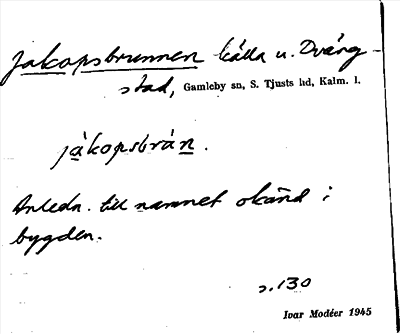 Jakopsbrunnen källa u. Dvärg-
stad, Gamleby sn, S. Tjusts hd, Kalm. l.
jákopsbrán.
Anledn. till namnet okänd i
bygden.
s.130
Ivar Modéer 1945